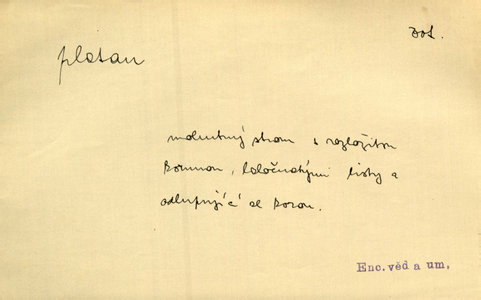 Bot.
platan
mohutný strom s rozložitou
korunou, laločnatými listy a
odlupující se korou.
Enc. věd a um.